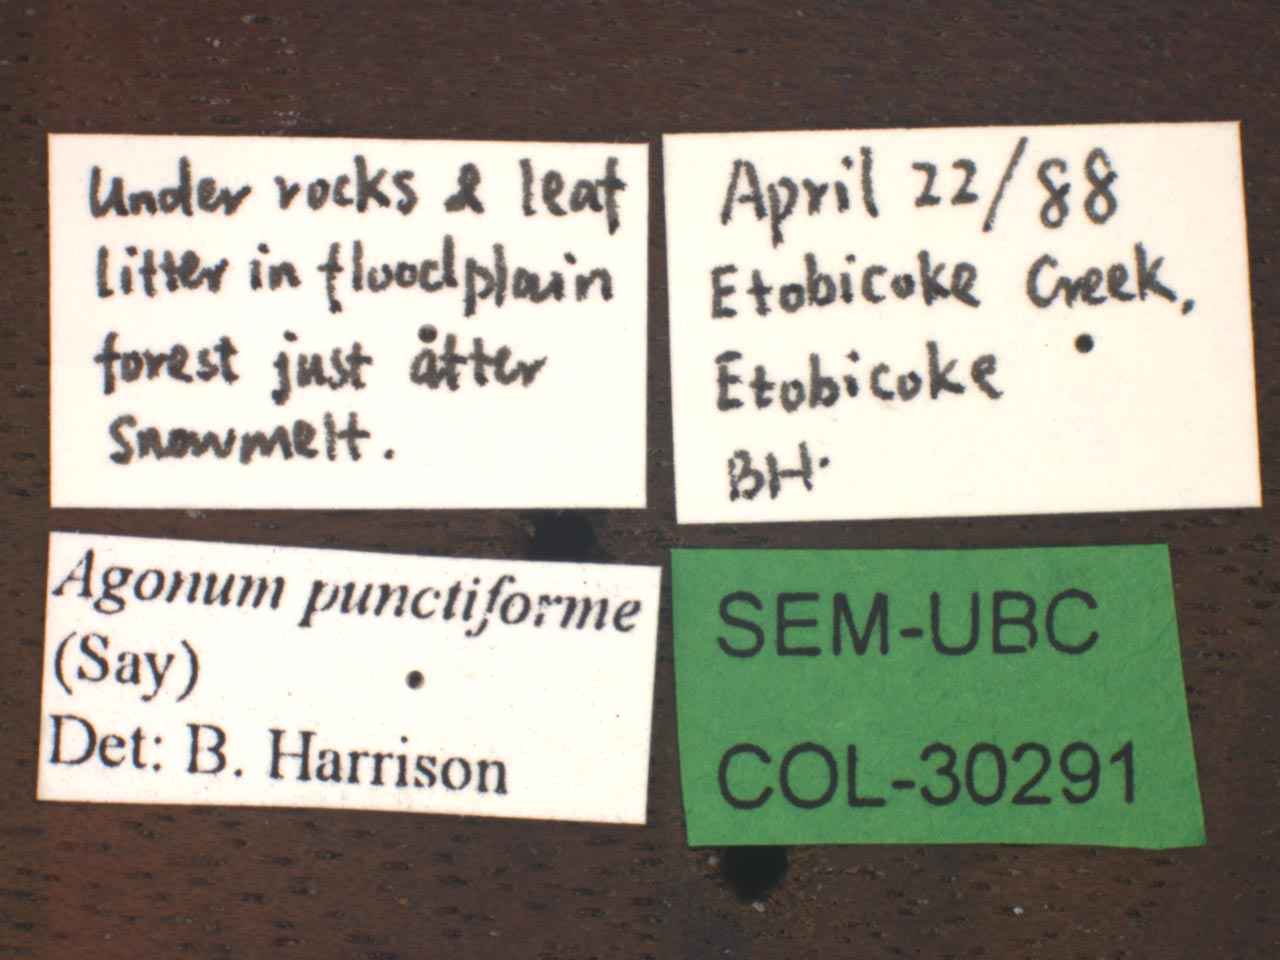 Under rocks & leaf
litter in floodplain
forest just after
snowmelt.
April 22/88
Etobicoke Creek,
Etobicoke
BH.
Agonum punctiforme
(Say)
Det: B. Harrison
SEM-UBC
COL-30291